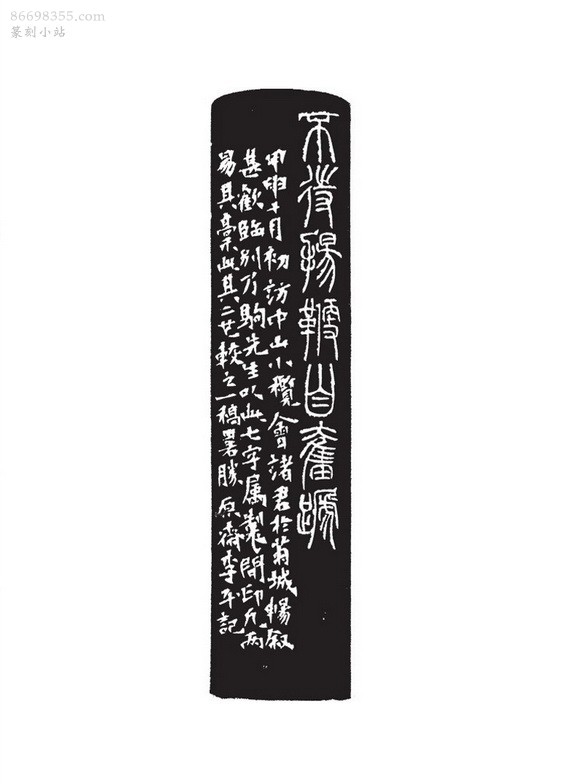 86698355.com
篆刻小站
不待揚鞭自奮蹄
甲申十月初訪中山小欖會諸君於菊城暢敘
甚歡臨別行駒先生以此七字属製閒印凡兩
易其稾此其二也較之一稿署勝原齋李平記